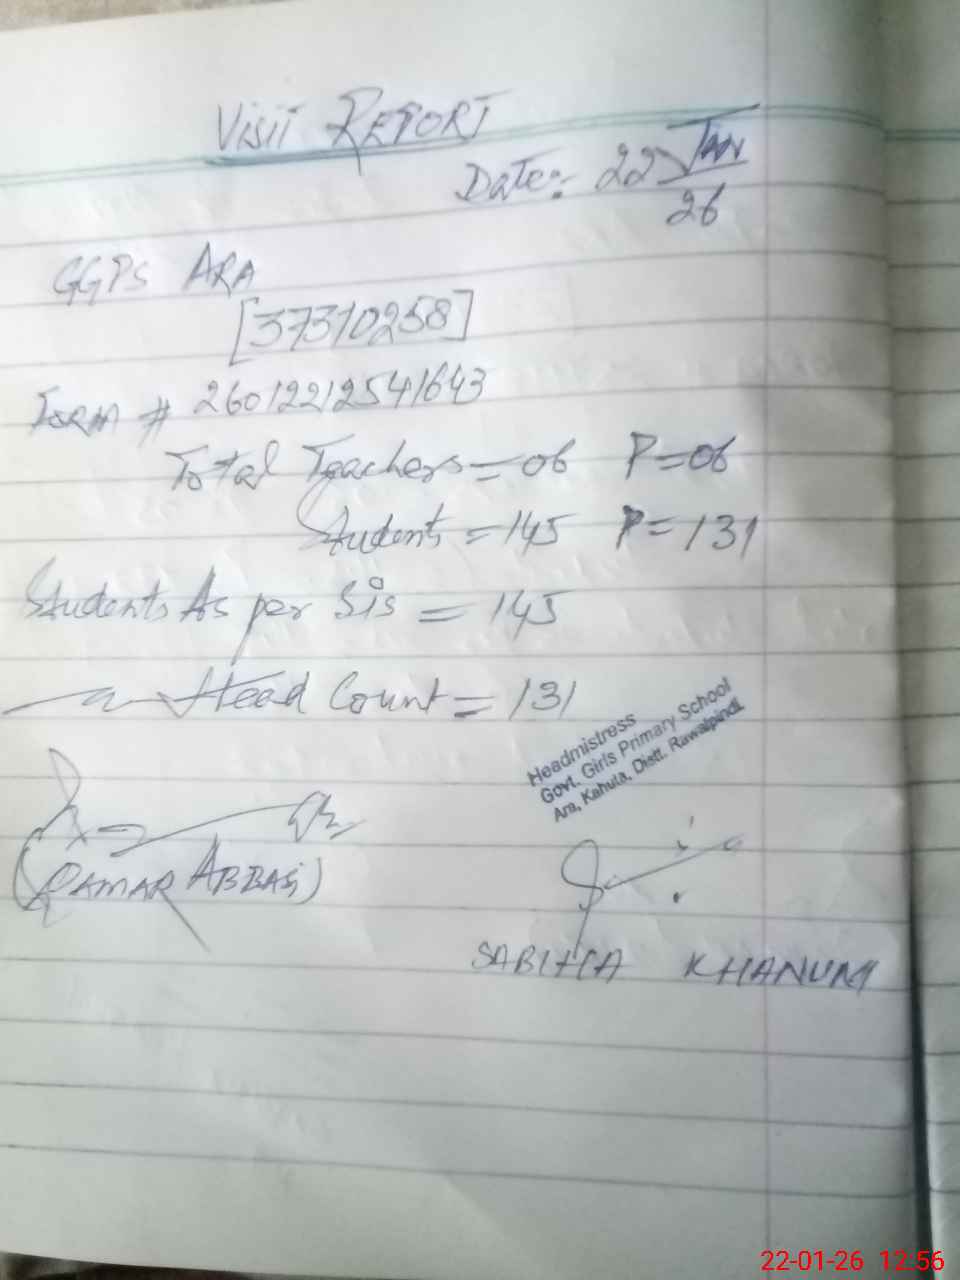 VISIT REPORT
Date:- 22 Jan
26
GGPS ARA
[37310258]
Form # 26012212541643
Total Teachers = 06 P=06
Students = 145 P=131
Students As per Sis = 145
Head Count = 131
Headmistress
Govt. Girls Primary School
Ara, Kahuta, Distt. Rawalpindi.
(QAMAR ABBAS)
SABIHA KHANUM
22-01-26 12:56